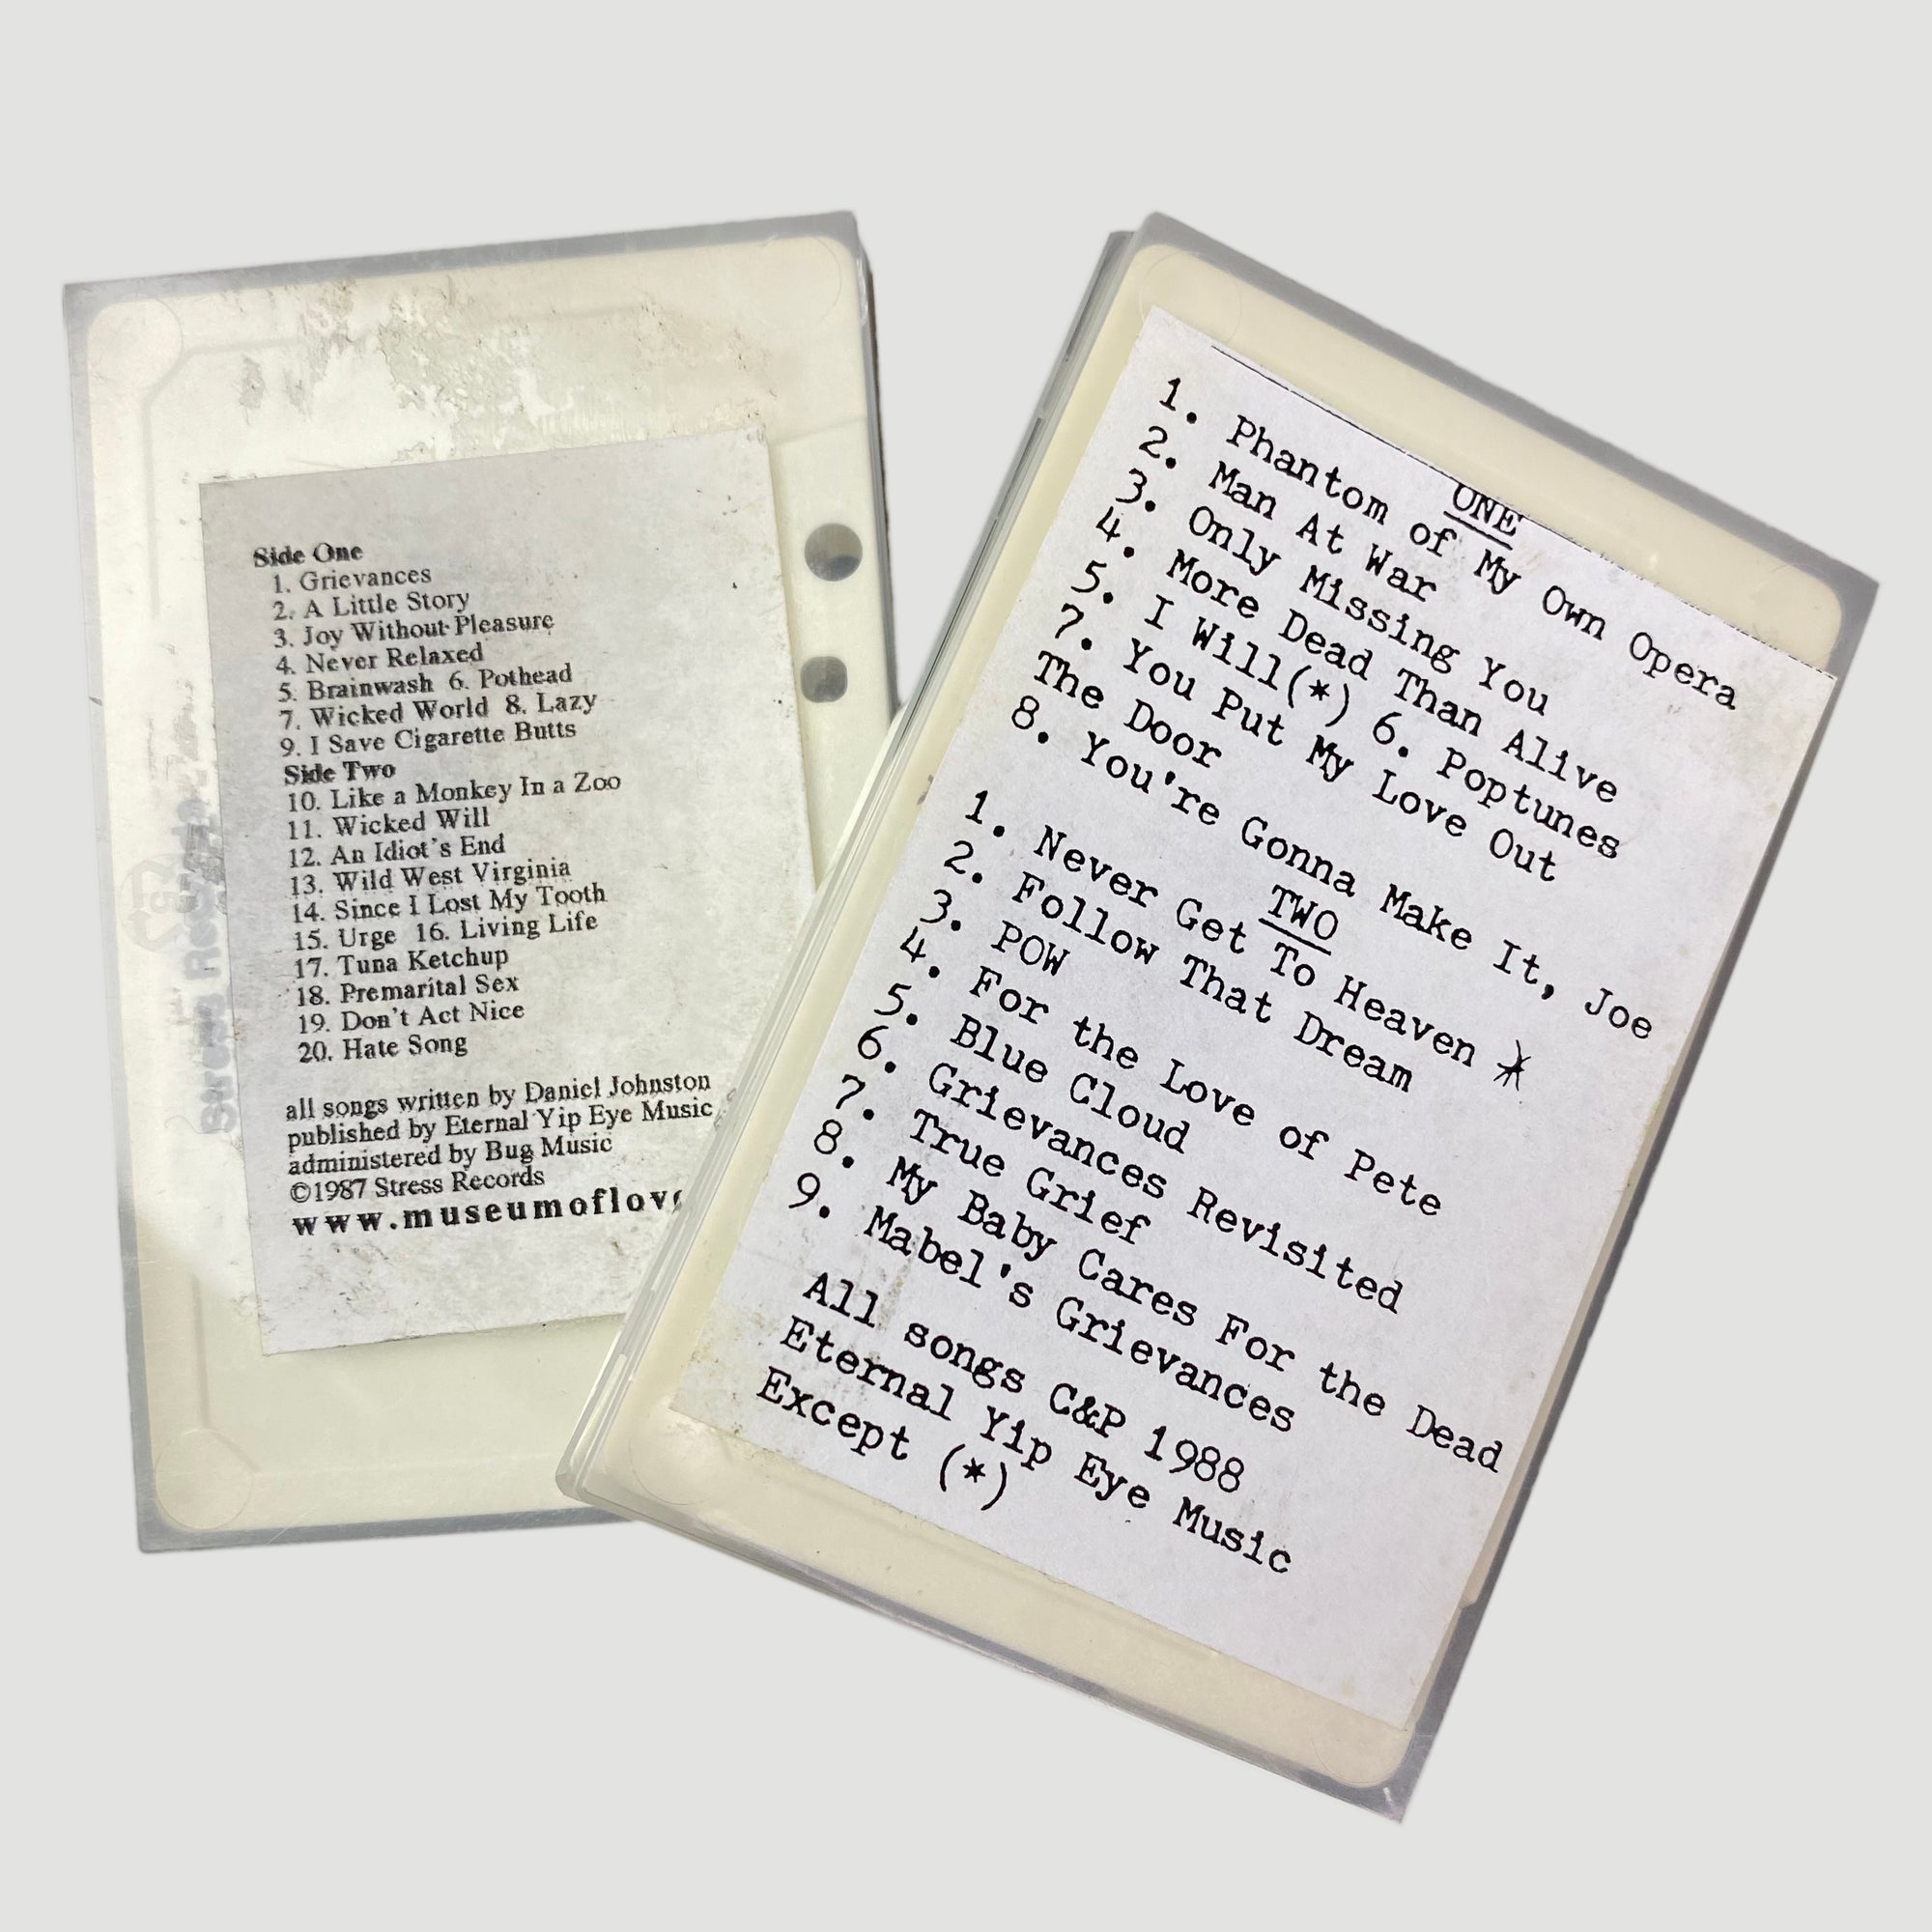 Side One
1. Grievances
2. A Little Story
3. Joy Without Pleasure
4. Never Relaxed
5. Brainwash 6. Pothead
7. Wicked World 8. Lazy
9. I Save Cigarette Butts
Side Two
10. Like a Monkey In a Zoo
11. Wicked Will
12. An Idiot's End
13. Wild West Virginia
14. Since I Lost My Tooth
15. Urge 16. Living Life
17. Tuna Ketchup
18. Premarital Sex
19. Don't Act Nice
20. Hate Song
all songs written by Daniel Johnston
published by Eternal Yip Eye Music
administered by Bug Music
©1987 Stress Records
www.museumoflov
Stress Records
ONE
1. Phantom of My Own Opera
2. Man At War
3. Only Missing You
4. More Dead Than Alive
5. I Will(*) 6. Poptunes
7. You Put My Love Out
The Door
8. You're Gonna Make It, Joe
TWO
1. Never Get To Heaven *
2. Follow That Dream
3. POW
4. For the Love of Pete
5. Blue Cloud
6. Grievances Revisited
7. True Grief
8. My Baby Cares For the Dead
9. Mabel's Grievances
All songs C&P 1988
Eternal Yip Eye Music
Except (*)